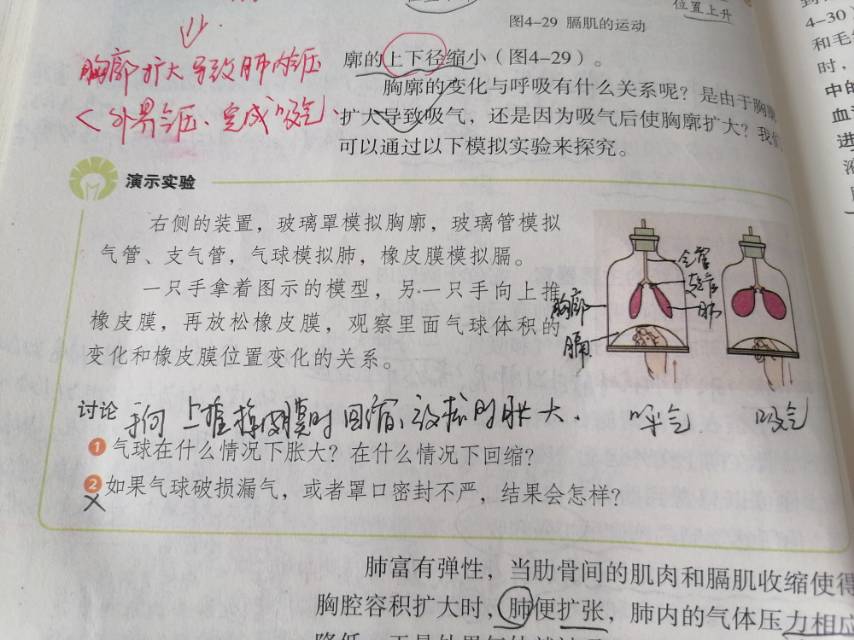 位置上升
图4-29 膈肌的运动
胸廓扩大导致肺内气压
<外界气压、完成吸气、
廓的上下径缩小（图4-29）。
胸廓的变化与呼吸有什么关系呢？是由于胸廓
扩大导致吸气，还是因为吸气后使胸廓扩大？我们
可以通过以下模拟实验来探究。
演示实验
右侧的装置，玻璃罩模拟胸廓，玻璃管模拟
气管、支气管，气球模拟肺，橡皮膜模拟膈。
一只手拿着图示的模型，另一只手向上推
橡皮膜，再放松橡皮膜，观察里面气球体积的
变化和橡皮膜位置变化的关系。
气管
支气管
肺
胸廓
膈
讨论
手向上推橡皮膜时回缩、放松时胀大.
呼气
吸气
1 气球在什么情况下胀大？在什么情况下回缩？
2 如果气球破损漏气，或者罩口密封不严，结果会怎样？
肺富有弹性，当肋骨间的肌肉和膈肌收缩使得
胸腔容积扩大时，肺便扩张，肺内的气体压力相应
4-30）
和毛
时，
中的
血
进